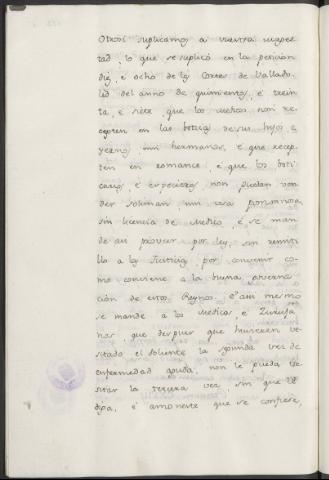 Otrosi suplicamos a vuestra mages
tad, lo que se suplicó en la peticion
diez, e ocho de las Cortes de Vallado
lid del anno de quinientos, e trein
ta, e siete, que los Medicos non re
cepten en las boticas de sus hijos, e
yernos, nin hermanos, e que recep
ten en romance, e que los boti
carios, e especieros non puedan ven
der soliman, nin cosa ponzoñosa,
sin licencia de Medico, e se man
de asi proveer por ley, sin remiti
llo a las Justicias, por convenir co
mo conviene a la buena governa
ción de estos Reynos. E asi mesmo
se mande a los Medicos, e Zuruja
nos, que despues que huvieren vi
sitado el doliente la segunda vez de
enfermedad aguda, non le pueda vi
sitar la tercera vez, sin que le
diga, e amoneste que se confiese,